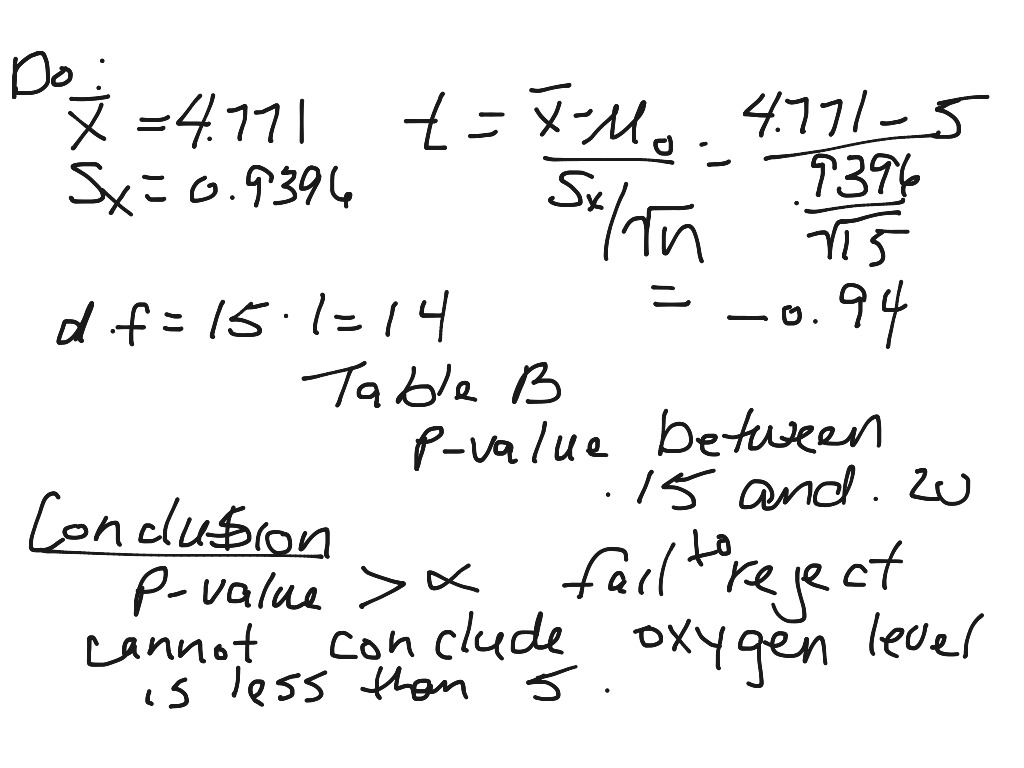 Do:
x̄ = 4.771 t = (x̄ - μ₀)/(Sx/√n) = (4.771 - 5)/(.9396/√15)
Sx = 0.9396
= -0.94
d.f = 15 - 1 = 14
Table B
P-value between
.15 and .20
Conclusion
P-value > α fail to reject
cannot conclude oxygen level
is less than 5.